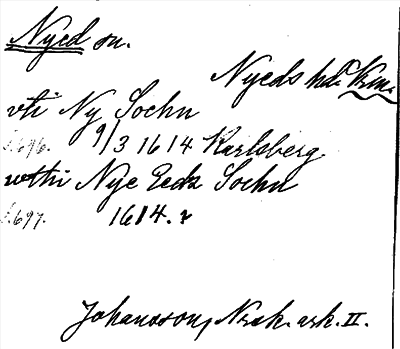 Nyed sn.
Nyeds hd Vrm.
vti Ny Sochn
s.696. 9/3 1614 Karlsberg
wthi Nye Eedz Sochn
s.697. 1614.
Johansson, Norsk. ark. II.